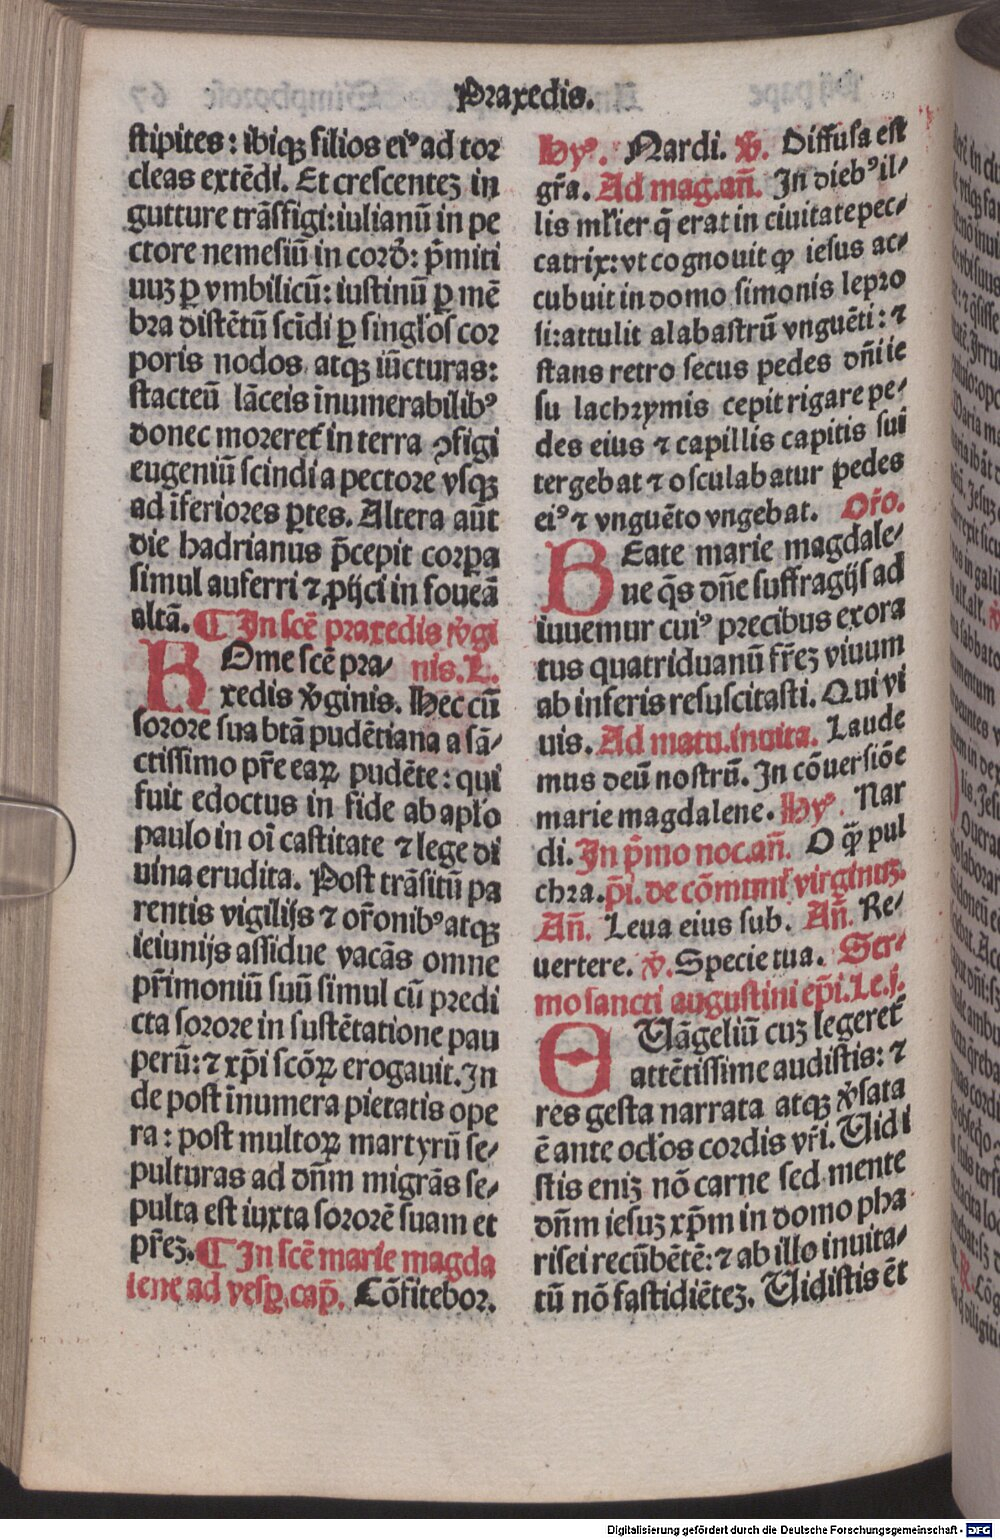 Praxedis.
stipites: ibiqȝ filios eiꝰ ad tor
cleas extẽdi. Et crescentez in
gutture trãsfigi: iulianũ in pe
ctore nemesiũ in cordẽ: p̃miti
uuz ꝑ vmbilicũ: iustinũ ꝑ mẽ
bra distẽtũ scĩdi ꝑ singl'os cor
poris nodos atqȝ iũcturas:
stacteũ lãceis ĩnumerabilibꝰ
donec moreret᷑ in terra ꝯfigi
eugeniũ scindi a pectore vsqȝ
ad ĩferiores ꝑtes. Altera aũt
die hadrianus p̃cepit corpa
simul auferri ⁊ ꝓijci in foueã
altã. ¶ In scẽ praxedis v̾gi
nis. L.
ROme scẽ pra⸗
xedis v̾ginis. Hec cũ
sorore sua btã pudẽtiana a sã⸗
ctissimo pr̃e eaꝝ pudẽte: qui
fuit edoctus in fide ab apl'o
paulo in oĩ castitate ⁊ lege di
uina erudita. Post trãsitũ pa
rentis vigilijs ⁊ or̃onibꝰ atqȝ
ieiunijs assidue vacãs omne
pr̃imoniũ suũ simul cũ predi
cta sorore in sustẽtatione pau
perũ: ⁊ xp̃i scõꝝ erogauit. In
de post ĩnumera pietatis ope
ra: post multoꝝ martyrũ se⸗
pulturas ad dñm migrãs se⸗
pulta est iuxta sororẽ suam et
pr̃ez. ¶ In scẽ marie magda
lene ad vesꝑ. cap̃. Cõfitebor.
Hyꝰ. Nardi. v̾. Diffusa est
gr̃a. Ad mag. añ. In diebꝰ il⸗
lis ml'ier q̃ erat in ciuitate pec⸗
catrix: vt cognouit ꝙ iesus ac⸗
cubuit in domo simonis lepro
si: attulit alabastrũ vnguẽti: ⁊
stans retro secus pedes dñi ie
su lachrymis cepit rigare pe⸗
des eius ⁊ capillis capitis sui
tergebat ⁊ osculabatur pedes
eiꝰ ⁊ vnguẽto vngebat. Or̃o.
BEate marie magdale⸗
ne q̃s dñe suffragijs ad
iuuemur cuiꝰ precibus exora
tus quatriduanũ fr̃ez viuum
ab inferis resuscitasti. Qui vi
uis. Ad matu. inuita. Laude
mus deũ nostrũ. In cõuersiõe
marie magdalene. Hyꝰ. Nar
di. In p̃mo noc. añ. O q̃ꝫ pul
chra. p̃i. de cõmuni virginuz.
Añ. Leua eius sub. Añ. Re⸗
uertere. v̾. Specie tua. Ser⸗
mo sancti augustini ep̃i. Le. j.
EUãgeliũ cuz legeret᷑
attẽtissime audistis: ⁊
res gesta narrata atqȝ v̾sata
ẽ ante ocl'os cordis vr̃i. Uidi
stis eniz nõ carne sed mente
dñm iesuz xp̃m in domo pha
risei recũbẽtẽ: ⁊ ab illo inuita⸗
tũ nõ fastidiẽtez. Uidistis ẽt
Digitalisierung gefördert durch die Deutsche Forschungsgemeinschaft - DFG